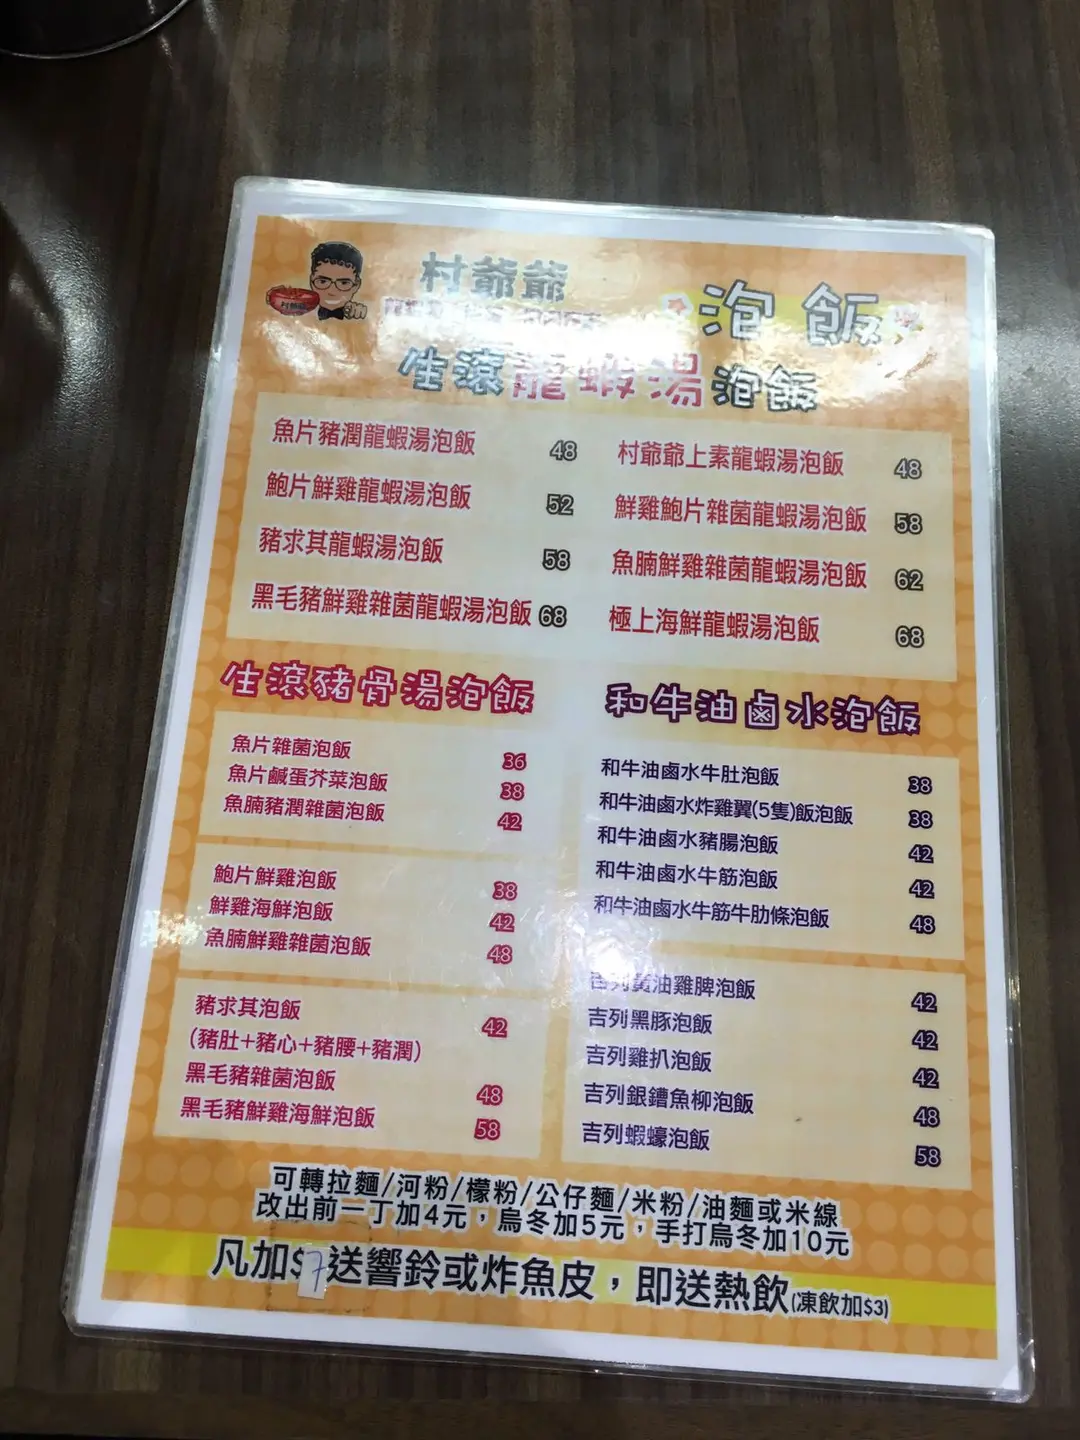 村爺爺
泡飯
生滾龍蝦湯泡飯
魚片豬潤龍蝦湯泡飯 48
鮑片鮮雞龍蝦湯泡飯 52
豬求其龍蝦湯泡飯 58
黑毛豬鮮雞雜菌龍蝦湯泡飯 68
村爺爺上素龍蝦湯泡飯 48
鮮雞鮑片雜菌龍蝦湯泡飯 58
魚腩鮮雞雜菌龍蝦湯泡飯 62
極上海鮮龍蝦湯泡飯 68
生滾豬骨湯泡飯
魚片雜菌泡飯 36
魚片鹹蛋芥菜泡飯 38
魚腩豬潤雜菌泡飯 42
鮑片鮮雞泡飯 38
鮮雞海鮮泡飯 42
魚腩鮮雞雜菌泡飯 48
豬求其泡飯 42
(豬肚+豬心+豬腰+豬潤)
黑毛豬雜菌泡飯 48
黑毛豬鮮雞海鮮泡飯 58
和牛油鹵水泡飯
和牛油鹵水牛肚泡飯 38
和牛油鹵水炸雞翼(5隻)飯泡飯 38
和牛油鹵水豬腸泡飯 42
和牛油鹵水牛筋泡飯 42
和牛油鹵水牛筋牛肋條泡飯 48
吉列黃油雞脾泡飯 42
吉列黑豚泡飯 42
吉列雞扒泡飯 42
吉列銀鱈魚柳泡飯 48
吉列蝦蠔泡飯 58
可轉拉麵/河粉/檬粉/公仔麵/米粉/油麵或米線
改出前一丁加4元，烏冬加5元，手打烏冬加10元
凡加$7送響鈴或炸魚皮，即送熱飲(凍飲加$3)